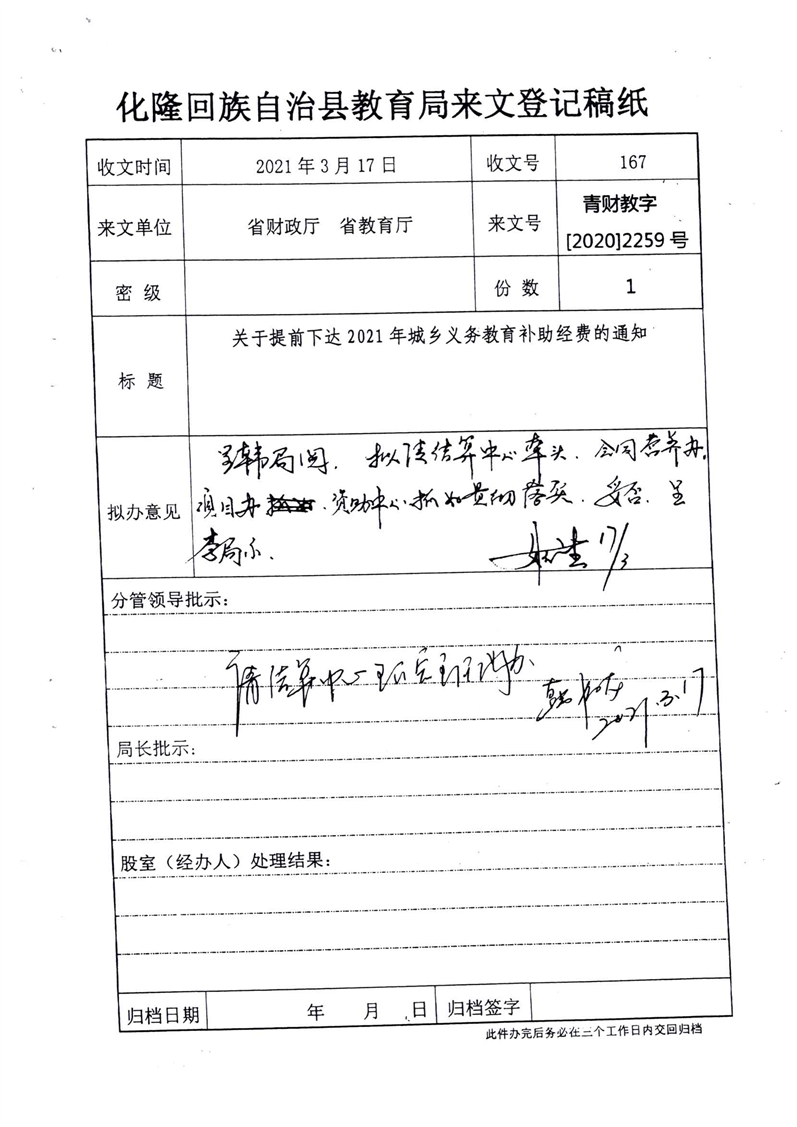 化隆回族自治县教育局来文登记稿纸
收文时间 2021年3月17日 收文号 167
来文单位 省财政厅 省教育厅 来文号 青财教字[2020]2259号
密 级 份 数 1
标 题 关于提前下达2021年城乡义务教育补助经费的通知
拟办意见
呈韩局阅. 拟请结算中心牵头、会同营养办、
项目办、资助中心抓好贯彻落实、妥否、呈
李局示、
17/3
分管领导批示:
请结算中心
2021.3.17
局长批示:
股室（经办人）处理结果:
归档日期 年 月 日 归档签字
此件办完后务必在三个工作日内交回归档